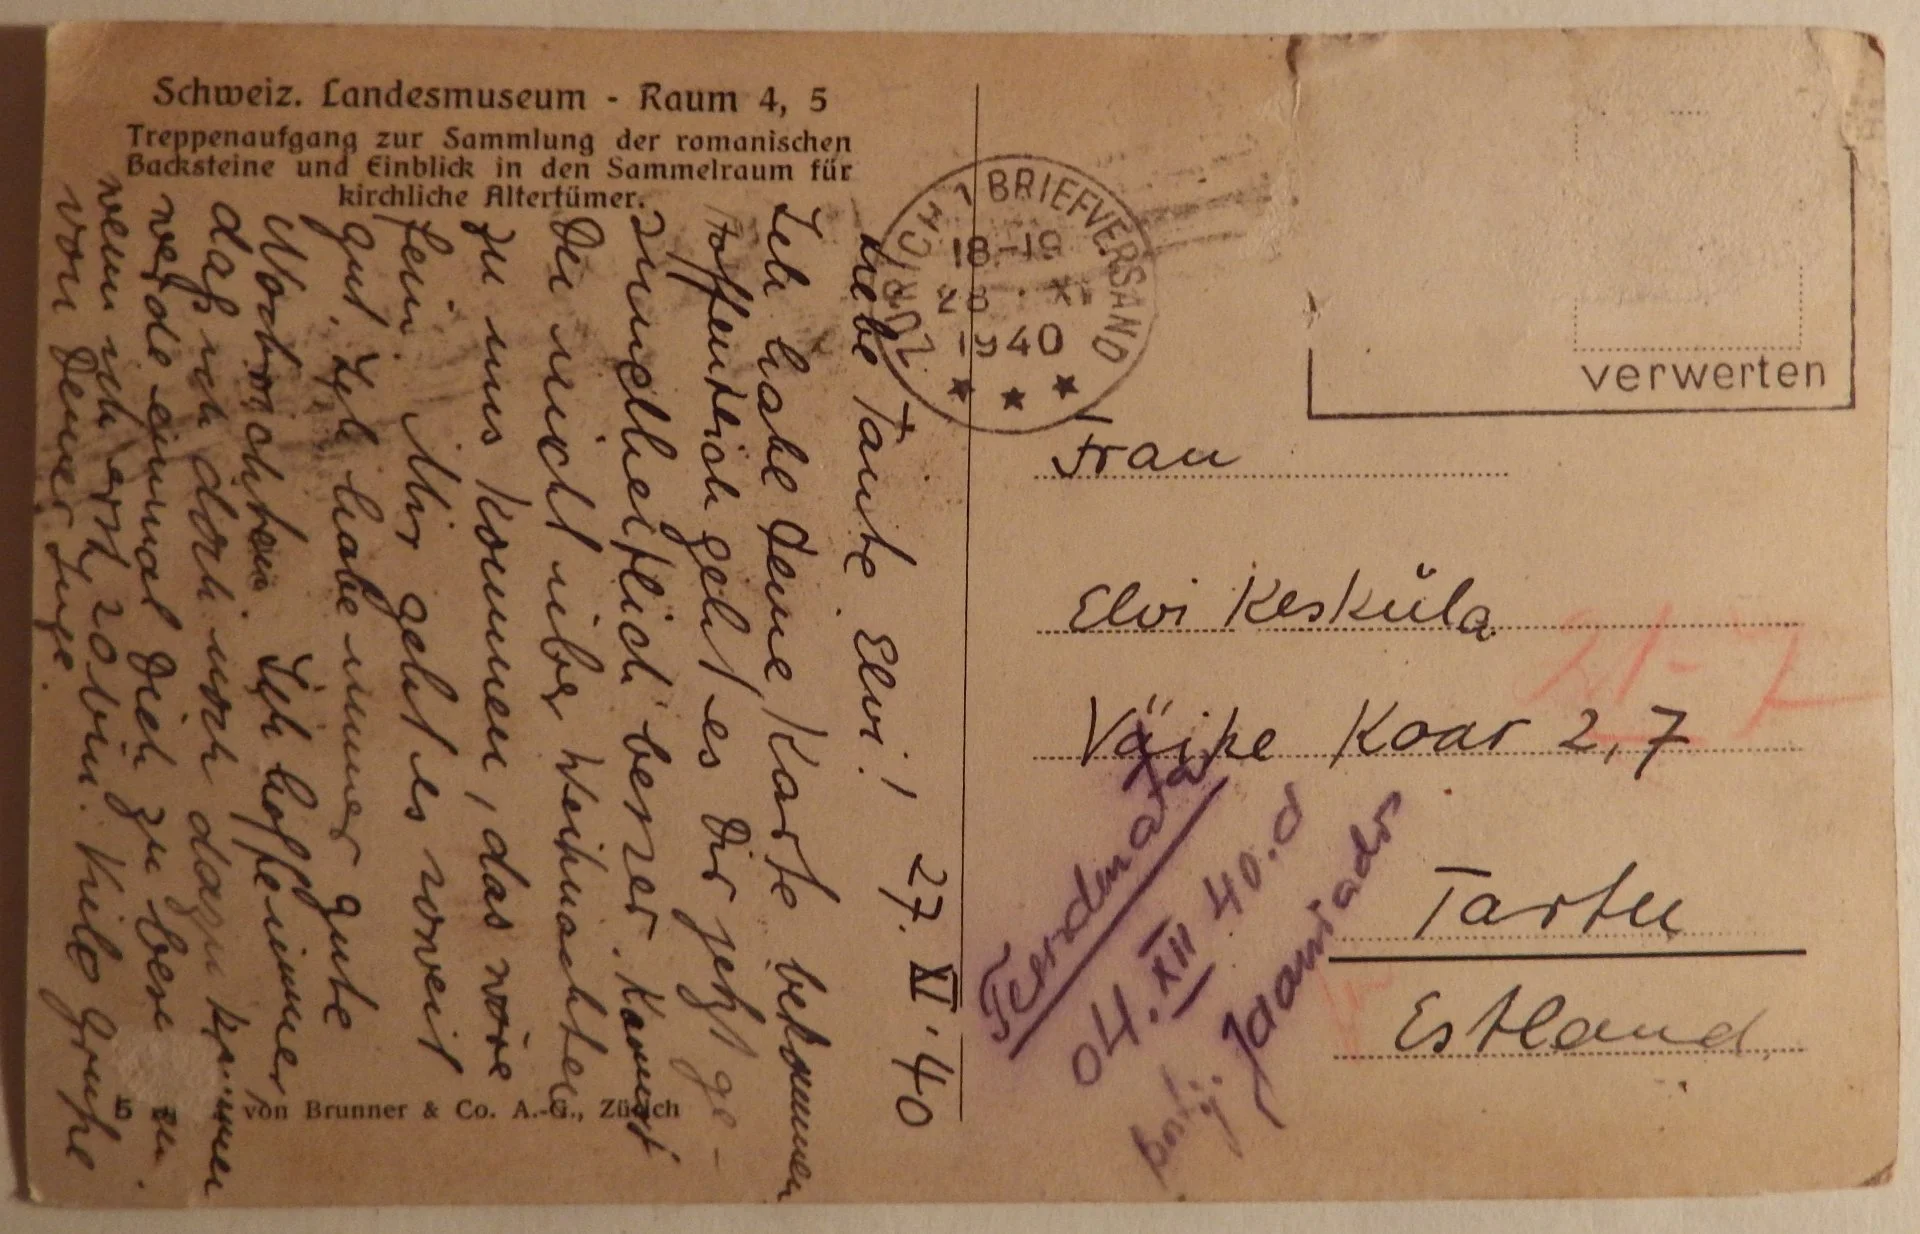 Schweiz. Landesmuseum - Raum 4, 5
Treppenaufgang zur Sammlung der romanischen
Backsteine und Einblick in den Sammelraum für
kirchliche Altertümer.
27. XI. 40
Liebe Tante Elvi!
Ich habe deine Karte bekommen
hoffentlich geht es Dir jetzt ge-
sundheitlich besser. Kannst
Du nicht über Weihnachten
zu uns kommen, das wäre
fein. Mir geht es soweit
gut. Ich habe immer gute
Ich hoffe immer
daß ich doch noch dazu kommen
werde einmal Dich zu
wenn ich erst 20 bin. Viele Grüße
von Deiner Inge.
von Brunner & Co. A.-G., Zürich
ZÜRICH 1 BRIEFVERSAND
18-19
28. XI
1940
verwerten
Frau
Elvi Kesküla
Väike Kaar 2, 7
Tartu
Estland
21-7
Teendmata
04. XII 40. a